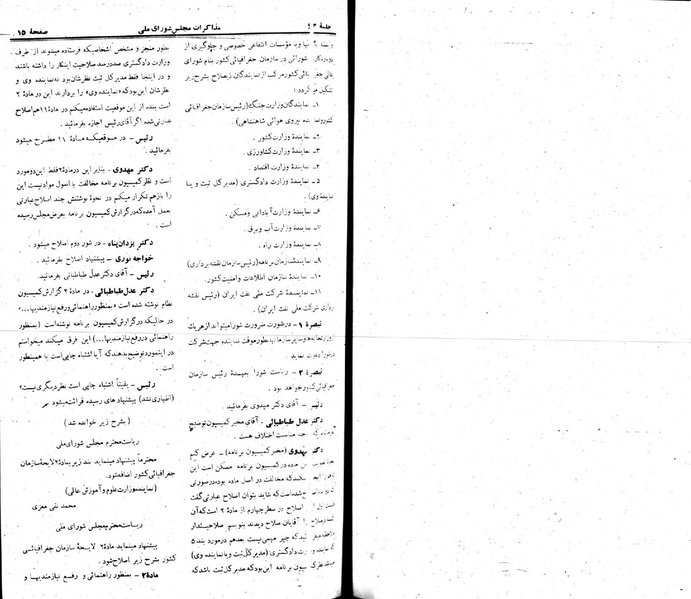 صفحهٔ ۱۵
مذاکرات مجلس شورای ملی
جلسهٔ
و مؤسسات انتفاعی خصوصی و جلوگیری از
شورائی در سازمان جغرافیائی کشور بنام شورای
کشور مرکب از نمایندگان ذیصلاح بشرح زیر
تشکیل میگردد :
۱ـ نمایندگان وزارت جنگ (رئیس سازمان جغرافیائی
کشور و نمایندهٔ نیروی هوائی شاهنشاهی) .
۲ـ نمایندهٔ وزارت کشور .
۳ـ نمایندهٔ وزارت کشاورزی .
۴ـ نمایندهٔ وزارت اقتصاد .
۵ـ نمایندهٔ وزارت دادگستری (مدیر کل ثبت و یا
نمایندهٔ وی) .
۶ـ نمایندهٔ وزارت آبادانی و مسکن .
۷ـ نمایندهٔ وزارت آب و برق .
۸ـ نمایندهٔ وزارت راه .
۹ـ نمایندهٔ سازمان برنامه (رئیس سازمان نقشه برداری)
۱۰ـ نمایندهٔ سازمان اطلاعات و امنیت کشور .
۱۱ـ نمایندهٔ شرکت ملی نفت ایران (رئیس نقشه
برداری شرکت ملی نفت ایران) .
تبصرهٔ ۱ ـ در صورت ضرورت شورا میتواند از هر یک
از وزارتخانه ها و سایر سازمانها بطور موقت نماینده جهت شرکت
در شورا دعوت نماید .
تبصرهٔ ۲ ـ ریاست شورا بعهدهٔ رئیس سازمان
جغرافیائی کشور خواهد بود .
رئیس ـ آقای دکتر مهدوی بفرمائید .
دکتر عدل طباطبائی ـ آقای مخبر کمیسیون توضیح
مناسبت اختلاف هست .
دکتر مهدوی (مخبر کمیسیون برنامه) ـ عرض کنم
ماده در کمیسیون برنامه ممکن است این
که مخالفت در اصل ماده بوده در صورتی
شده است که شاید بتوان اصلاح عبارتی گفت
در سطر چهارم از مادهٔ ۲ است که آن
آقایان صلاح دیدند بنویسم صلاحیتدار
که چیز مهمی نیست بعد هم در مورد بند ۵
وزارت دادگستری (مدیر کل ثبت و یا نماینده وی)
کمیسیون برنامه این بود که مدیر کل ثبت باشد که
بطور منجز و مشخص اشخاصیکه فرستاده میشوند از طرف
وزارت دادگستری صددرصد صلاحیت اینکار را داشته باشند
و در اینجا فقط مدیر کل ثبت نظرشان بود نه نماینده وی و
نظرشان این بود که «نماینده وی» را بردارند این در مادهٔ ۲
است بنده از این موقعیت استفاده میکنم در مادهٔ ۱۱ هم اصلاح
عبارتی شده اگر آقای رئیس اجازه بفرمائید .
رئیس ـ در موقعیکه مادهٔ ۱۱ مطرح میشود
بفرمائید .
دکتر مهدوی ـ بنابراین در مادهٔ ۲ فقط این دو مورد
است و نظر کمیسیون برنامه مخالفت با اصول مواد نیست این
را باز هم تکرار میکنم در نحوهٔ نوشتنش چند اصلاح عبارتی
بعمل آمده که در گزارش کمیسیون برنامه بعرض مجلس رسیده
است .
دکتر یزدان پناه ـ در شور دوم اصلاح میشود .
خواجه نوری ـ پیشنهاد اصلاح بفرمائید .
رئیس ـ آقای دکتر عدل طباطبائی بفرمائید .
دکتر عدل طباطبائی ـ در مادهٔ ۲ گزارش کمیسیون
نظام نوشته شده است «بمنظور راهنمائی و رفع نیازمندیها...»
در حالیکه در گزارش کمیسیون برنامه نوشته است (بمنظور
راهنمائی در رفع نیازمندیها...) این فرق میکند میخواستم
در اینمورد توضیح بدهند که آیا اشتباه چاپی است یا همینطور
است .
رئیس ـ یقیناً اشتباه چاپی است نظر دیگری نیست؟
(اظهاری نشد) پیشنهاد های رسیده قرائت میشود
(بشرح زیر خوانده شد)
ریاست محترم مجلس شورای ملی
محترماً پیشنهاد مینماید بند زیر بمادهٔ ۲ لایحهٔ سازمان
جغرافیائی کشور اضافه شود.
(نمایندهٔ وزارت علوم و آموزش عالی)
محمد تقی معزی
ریاست محترم مجلس شورای ملی
پیشنهاد مینماید مادهٔ ۲ لایحهٔ سازمان جغرافیائی
کشور بشرح زیر اصلاح شود .
مادهٔ ۲ ـ بمنظور راهنمائی و رفع نیازمندیها و